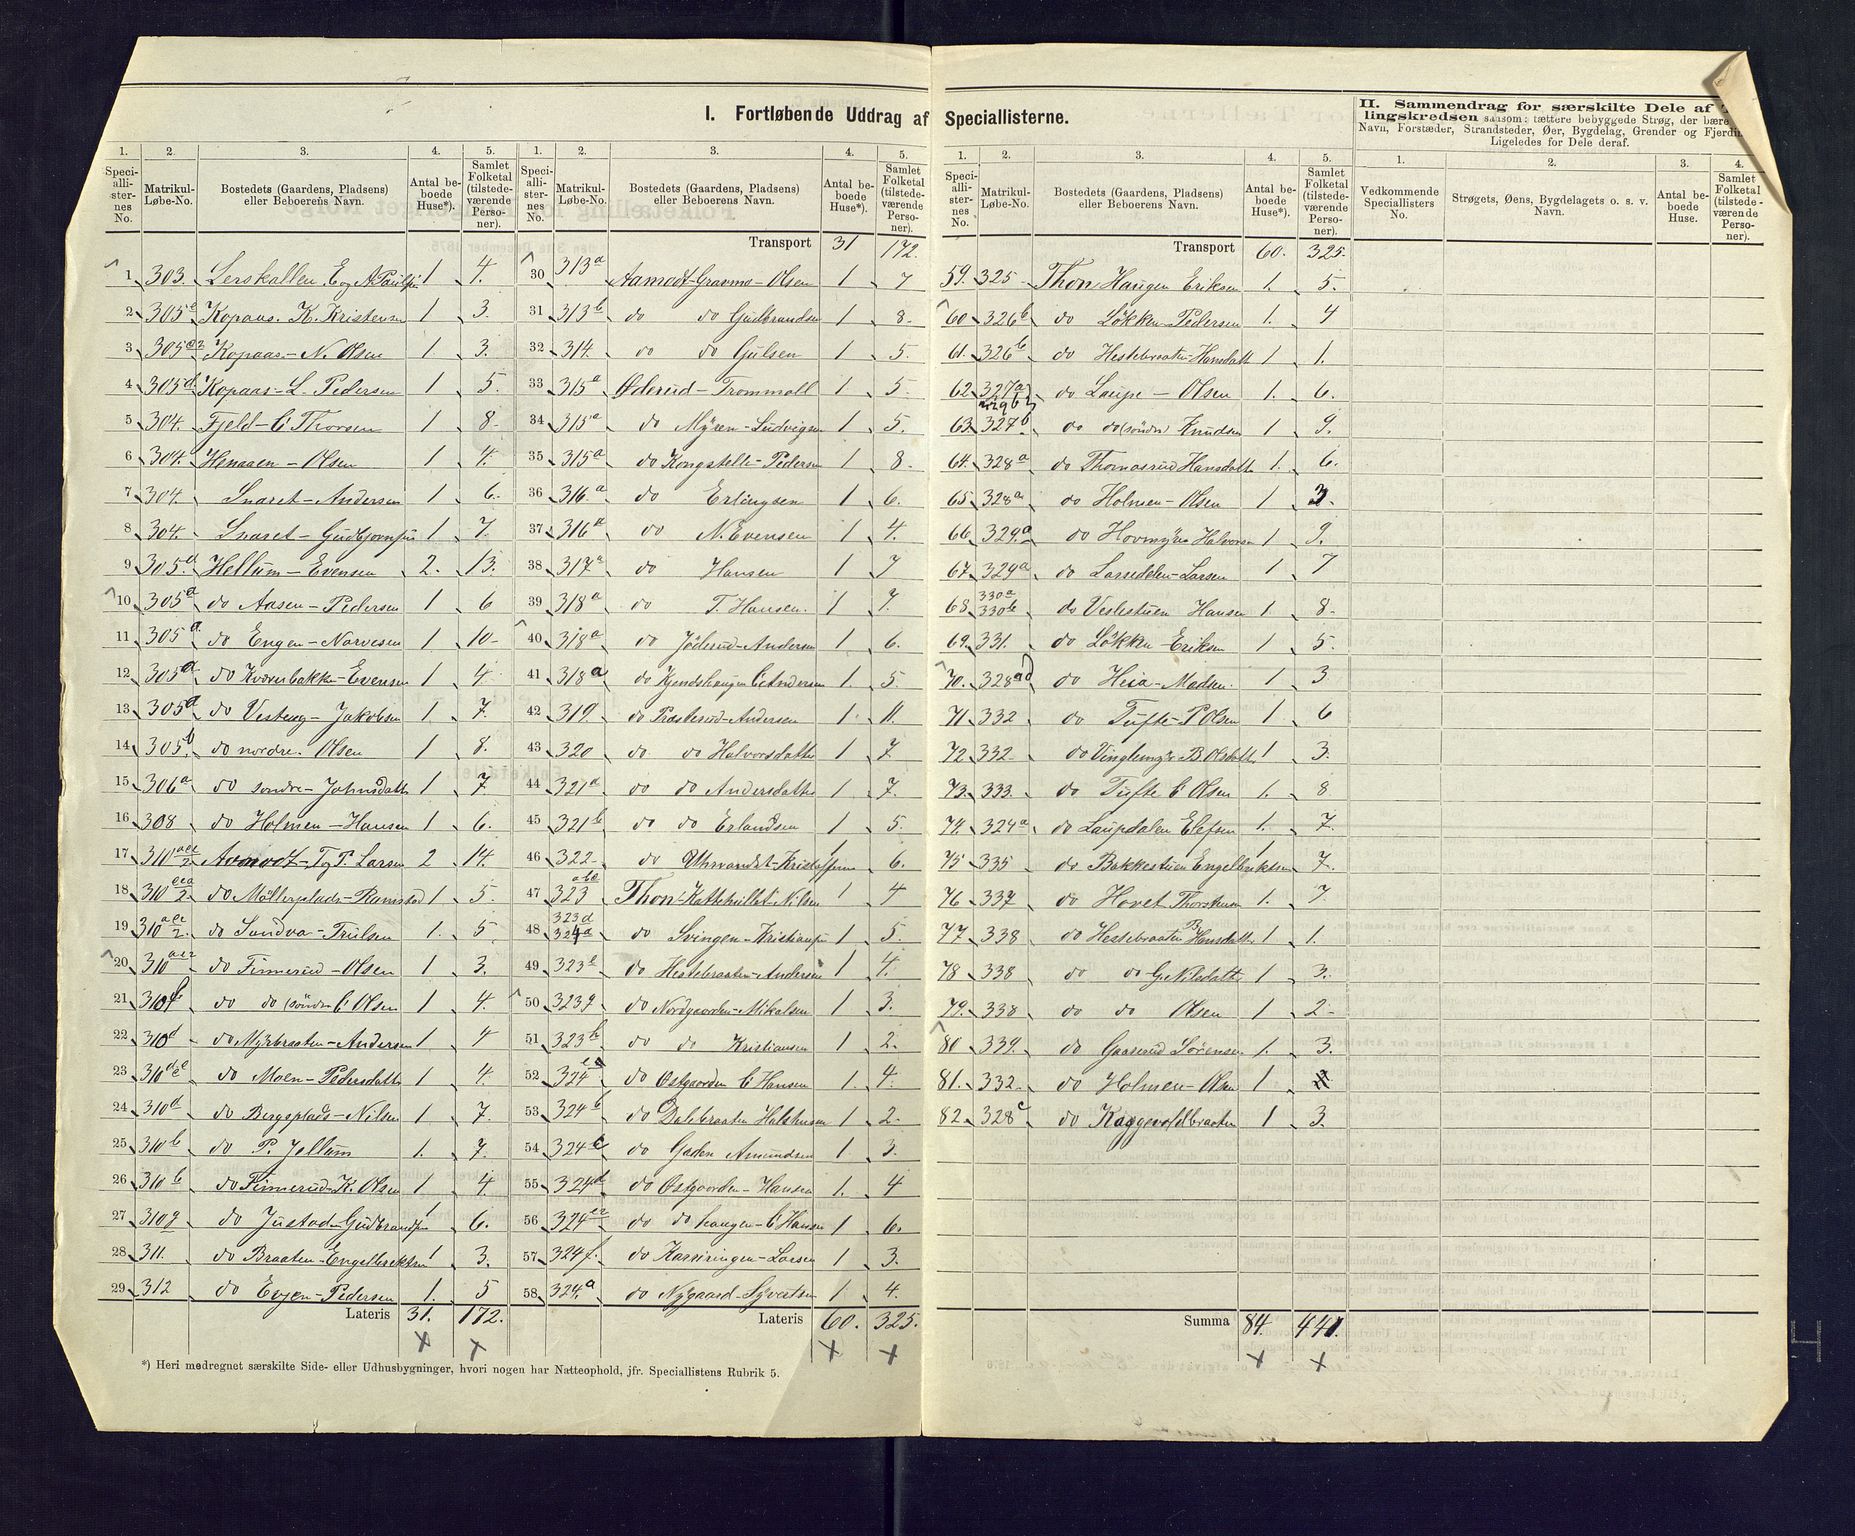 I. Fortløbende Uddrag af Speciallisterne.
II. Sammendrag for særskilte Dele af
lingskredsen saasom: tættere bebyggede Strøg, der bære
Navn, Forstæder, Strandsteder, Øer, Bygdelag, Grender og Fjerdin
Ligeledes for Dele deraf.
1. 2. 3. 4. 5.
Speci-allister-nes No. Matrikul-Løbe-No. Bostedets (Gaardens, Pladsens) eller Beboerens Navn. Antal be-boede Huse*). Samlet Folketal (tilstede-værende Perso-ner).
1 303. Lerskallen, E og A Paulsen 1 4.
2 305e Kopaas. K. Kristensen 1 3.
3 305 Kopaas - N. Olsen 1. 3.
4 305d Kopaas - L. Pedersen 1 5.
5 304. Fjeld - C Thorsen 1 8
6 304. Henaaen - Olsen 1 4.
7 304. Snaret - Andersen 1 6.
8 304. Snaret - Gudbjørnsen 1 7.
9 305.a Hellum - Evensen 2. 13.
10 305a do Aasen - Pedersen 1 6
11 305a do Engen - Narvesen 1 10
12 305a do Kværnbakke - Evensen 1 4
13 305a do Vesteng - Jakobsen 1 7.
14 305b do nordre. Olsen 1 8.
15 306a do søndre - Johnsdatter 1 7
16 308 do Holmen - Hansen 1 6.
17 310 Aamodt - T og P. Larsen 2 14.
18 310 do Møllerplads - Ramstad 1 5.
19 310 do Sandva - Trulsen 1. 5.
20 310 do Finnerud - Olsen 1 3.
21 310f do do (søndre C Olsen 1 4.
22 310d do Myrbraaten - Andersen 1 4
23 310 do Moen - Pedersdatter 1 4.
24 310d do Bergsplads - Nilsen 1 7.
25 310b do P. Jellum 1. 7.
26 310b do Finnerud - K. Olsen 1 4.
27 310g do Justad - Gudbrandsen 1 6.
28 311. do Braaten - Engelbrektsen 1 3.
29 312 do Evjen - Pedersen 1. 5
Lateris 31. 172.
*) Heri medregnet særskilte Side- eller Udhusbygninger, hvori nogen har Natteophold, jfr. Speciallistens Rubrik 5.
1. 2. 3. 4. 5.
Speci-alli-ster-nes No. Matrikul-Løbe-No. Bostedets (Gaardens, Pladsens) eller Beboerens Navn. Antal be-boede Huse*). Samlet Folketal (tilstede-værende Perso-ner).
Transport 31 172.
30 313a Aamodt - Gravmo - Olsen 1 7
31 313b do do Gudbrandsen 1 8.
32 314. do do Gulsen 1 5.
33 315a Øderud - Trommald 1 5
34 315a do Myren - Ludvigsen 1 5.
35 315a do Kongstelle - Pedersen 1 8.
36 316a do Erlingsen 1 6.
37 316a do N. Evensen 1 4.
38 317a do Hansen 1 7
39 318a do T. Hansen. 1 7.
40 318a do Jøderud - Andersen 1 6.
41 318a do Kjendshaugen C Andersen 1. 5.
42 319. do Præsterud - Andersen 1 11.
43 320 do do Halvorsdatter 1 7
44 321a do do Andersdatter 1 7.
45 321b do do Erlandsen 1 5.
46 322 do Uhrvandet - Kristoffersen 1 6.
47 323 abc Thon - Kattehullet - Nilsen 1 4
48 323d 324a do Svingen - Kristiansen 1 5.
49 323e do Hestebraaten - Andersen 1 4.
50 323g do Nordgaarden - Mikalsen 1 3.
51 323b do do Kristiansen 1 2.
52 324 do Østgaarden C Hansen 1. 4.
53 324b do Dalebraaten Halstensen 1 2
54 324c do Gaden Amundsen 1 3.
55 324d do Østgaarden - Hansen 1. 4
56 324 do do haugen - C Hansen 1 6.
57 324f. do Kassiringen - Larsen 1 3.
58 324.a do Nygaard - Syvertsen 1 4.
Lateris 60. 325.
1. 2. 3. 4. 5.
Speci-alli-ster-nes No. Matrikul-Løbe-No. Bostedets (Gaardens, Pladsens) eller Beboerens Navn. Antal be-boede Huse*). Samlet Folketal (tilstede-værende Perso-ner).
Transport 60. 325.
59. 325 Thon Haugen Eriksen 1. 5.
60 326b do Løkken - Pedersen 1. 4
61. 326b do Hestebraaten - Hansdatter 1 1.
62 327a do Laupe - Olsen 1 6.
63. 327b do do (søndre) Knudsen 1 9.
64. 328a do Thomasrud Hansdatter 1. 6.
65 328a do Holmen - Olsen 1 3.
66 329.a do Hovmyra Halvorsen 1 9.
67. 329a do Lassedelen - Larsen 1 7
68 330a 330b do Veslestuen Hansen 1. 8.
69. 331. do Løkken - Eriksen 1 5.
70. 328ad do Heia - Madsen. 1 3
71. 332 do Tufte - P Olsen 1 6
72. 332 do Vinglemyr B. Olsdatter 1 3.
73. 333. do Tufte C Olsen 1. 8
74. 324a do Laupdalen Elefsen 1. 7.
75 335 do Bakkestuen Engelbrektsen 1 7.
76 337 do Hovet Thorstensen 1. 7.
77. 338 do Hestebraaten B Hansdatter 1. 1.
78 338 do do G. Nilsdatter 1 3.
79. 338 do do Olsen 1 2
80 339. do Gaaserud Sørensen 1. 3.
81. 332 do Holmen - Olsen 1
82 328c do Kaggevoldbraaten 1 3.
Summa 84. 441.
1. 2. 3. 4.
Vedkommende Speciallisters No. Strøgets, Øens, Bygdelagets o. s. v. Navn. Antal be-boede Huse. Samlet Folketal (tilstede-værende Perso-ner).